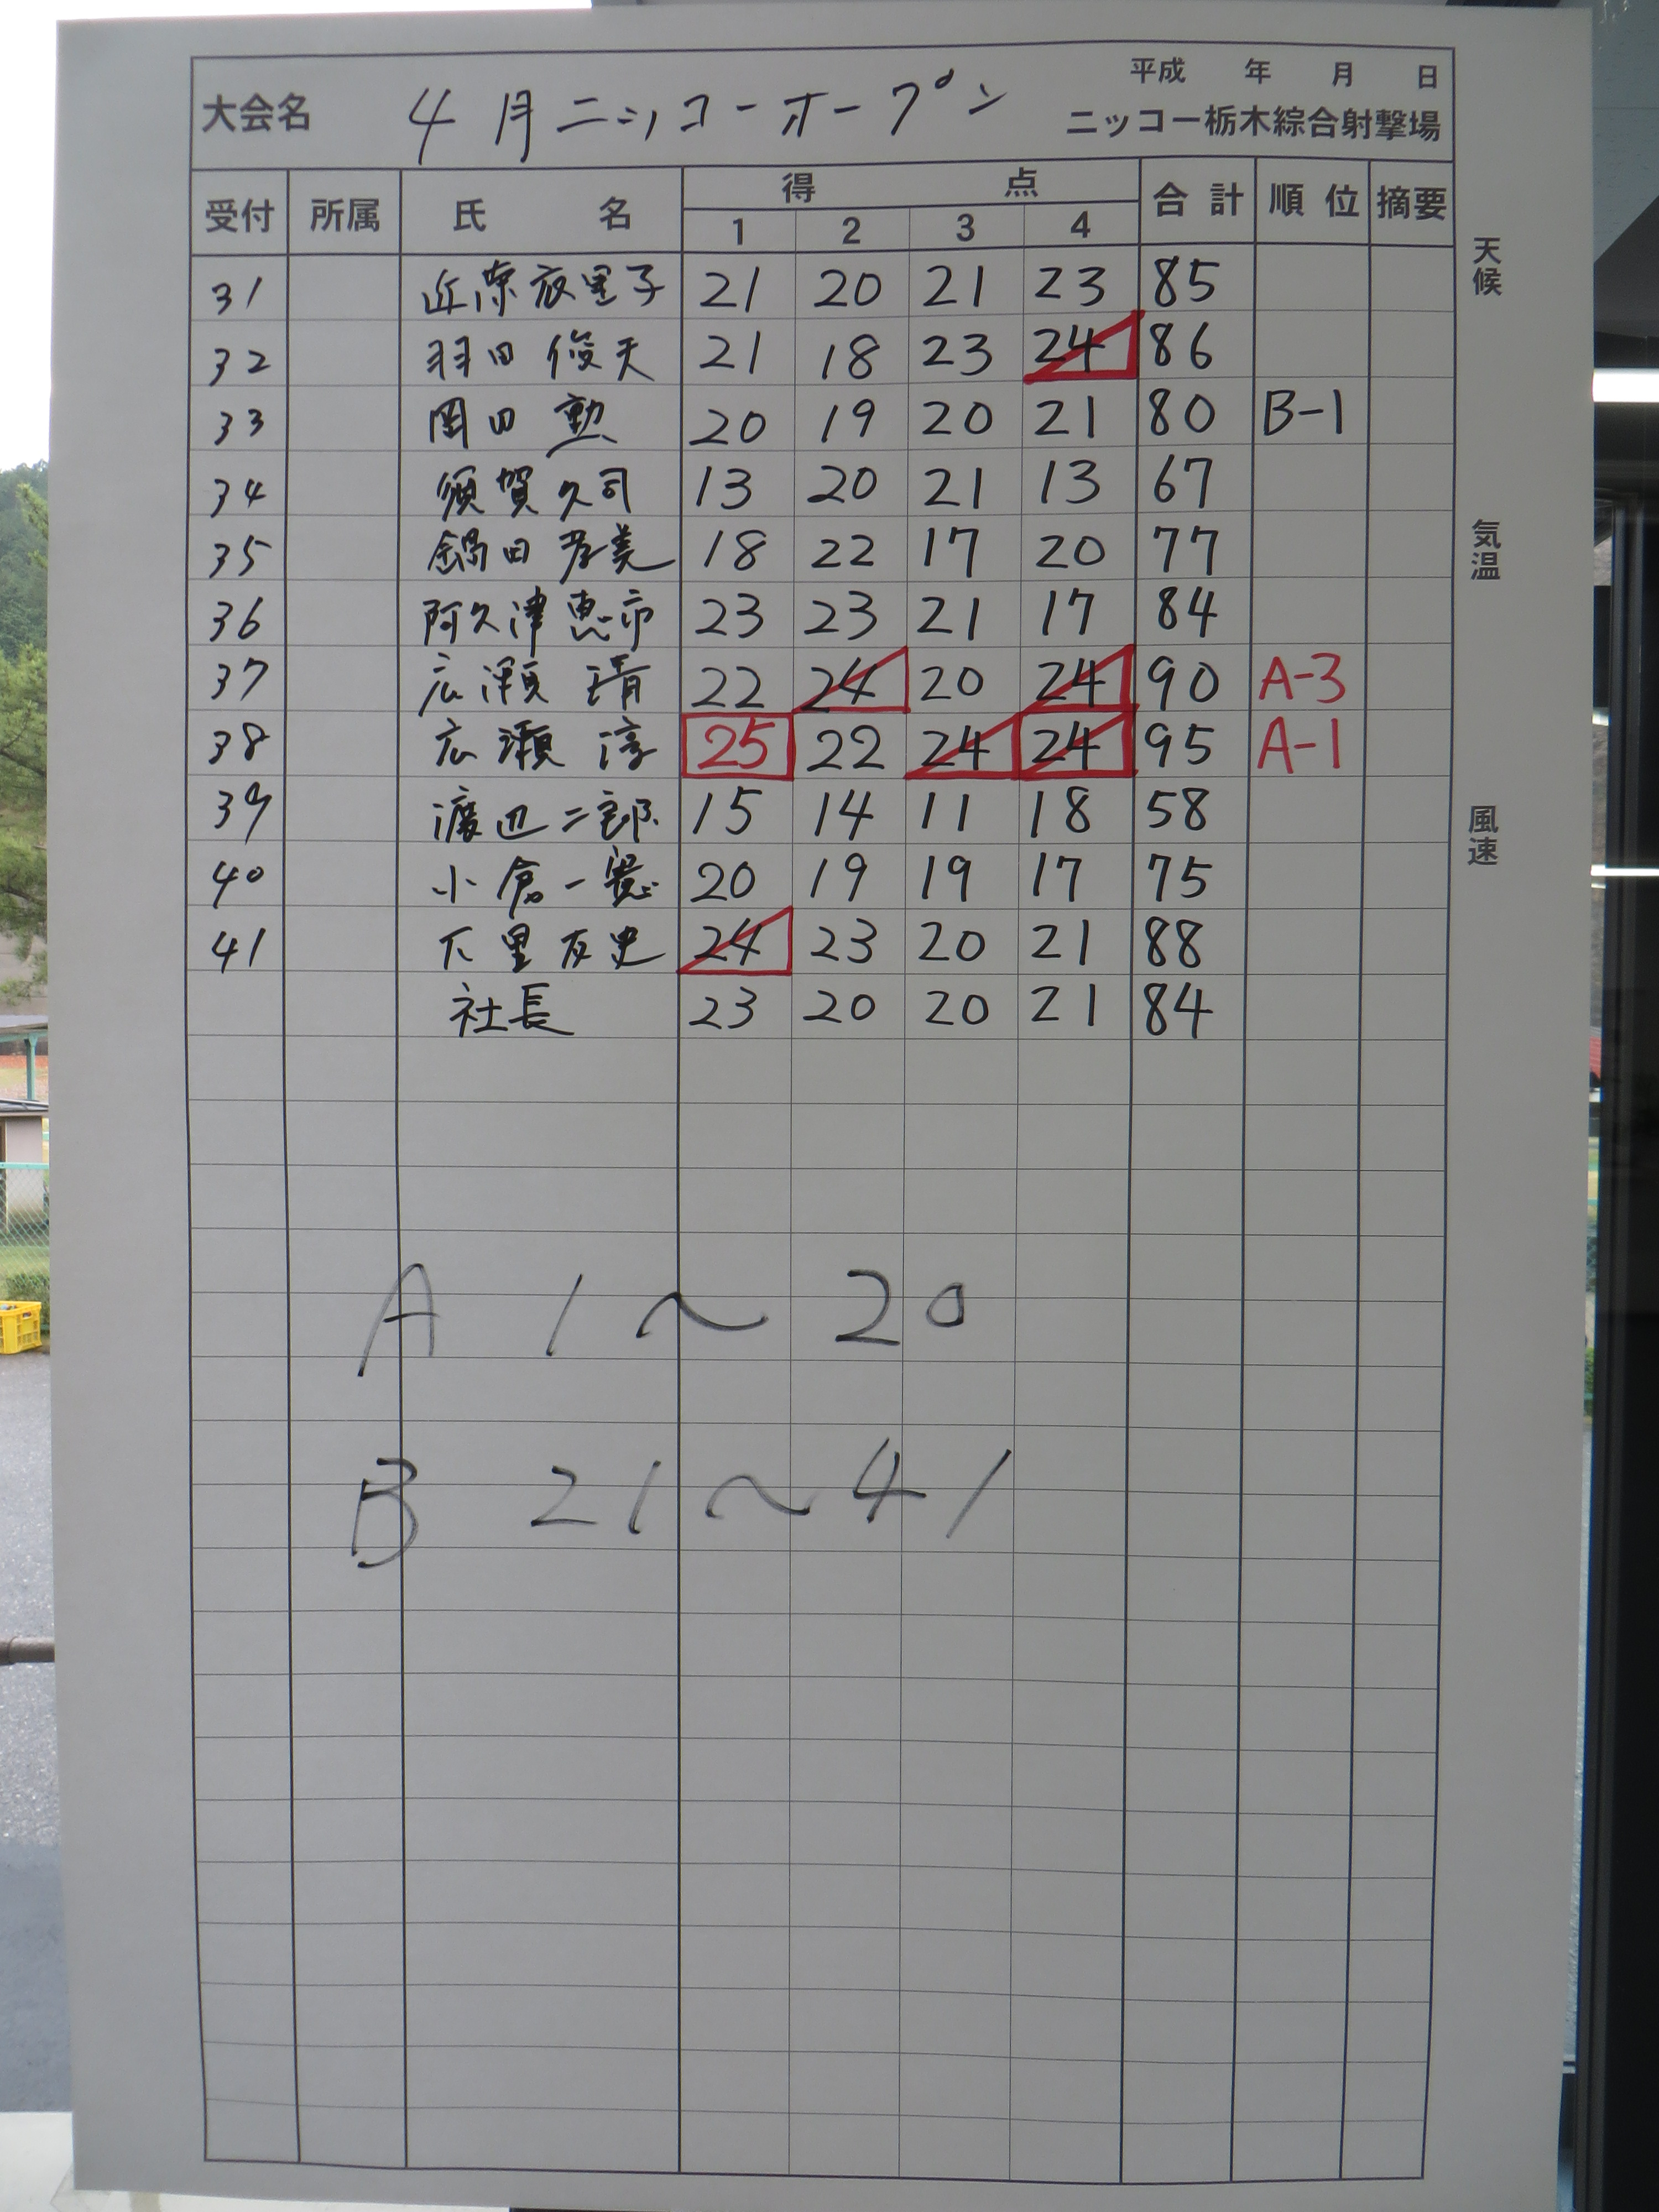 平成 年 月 日
大会名 4月ニッコーオープン ニッコー栃木綜合射撃場
受付 所属 氏名 得点 合計 順位 摘要
1 2 3 4
31 近藤衣里子 21 20 21 23 85
32 羽田 俊夫 21 18 23 24 86
33 岡田 勲 20 19 20 21 80 B-1
34 須賀久司 13 20 21 13 67
35 鍋田 孝美 18 22 17 20 77
36 阿久津恵市 23 23 21 17 84
37 広瀬 靖 22 24 20 24 90 A-3
38 広瀬 淳 25 22 24 24 95 A-1
39 渡辺二郎 15 14 11 18 58
40 小倉一 20 19 19 17 75
41 下里友史 24 23 20 21 88
社長 23 20 20 21 84
A 1〜20
B 21〜41
天候
気温
風速